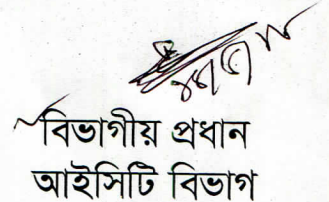 বিভাগীয় প্রধান
আইসিটি বিভাগ